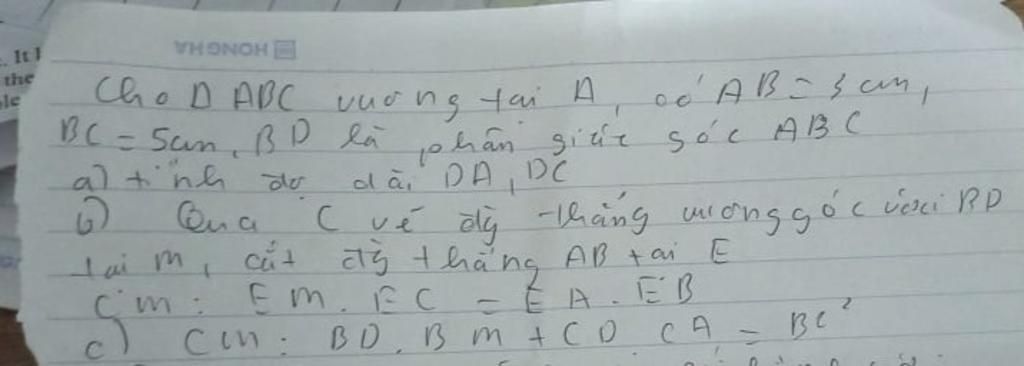 . It l
the
ole
HONGHA
Cho Δ ABC vuông tại A, có AB = 3 cm,
BC = 5cm, BD là phân giác góc ABC
a) tính độ dài DA, DC
b) Qua C vẽ đg thẳng vuông góc với BD
tại m, cắt đg thẳng AB tại E
Cm: EM. EC = EA. EB
c) Cm: BD. BM + CD. CA = BC²